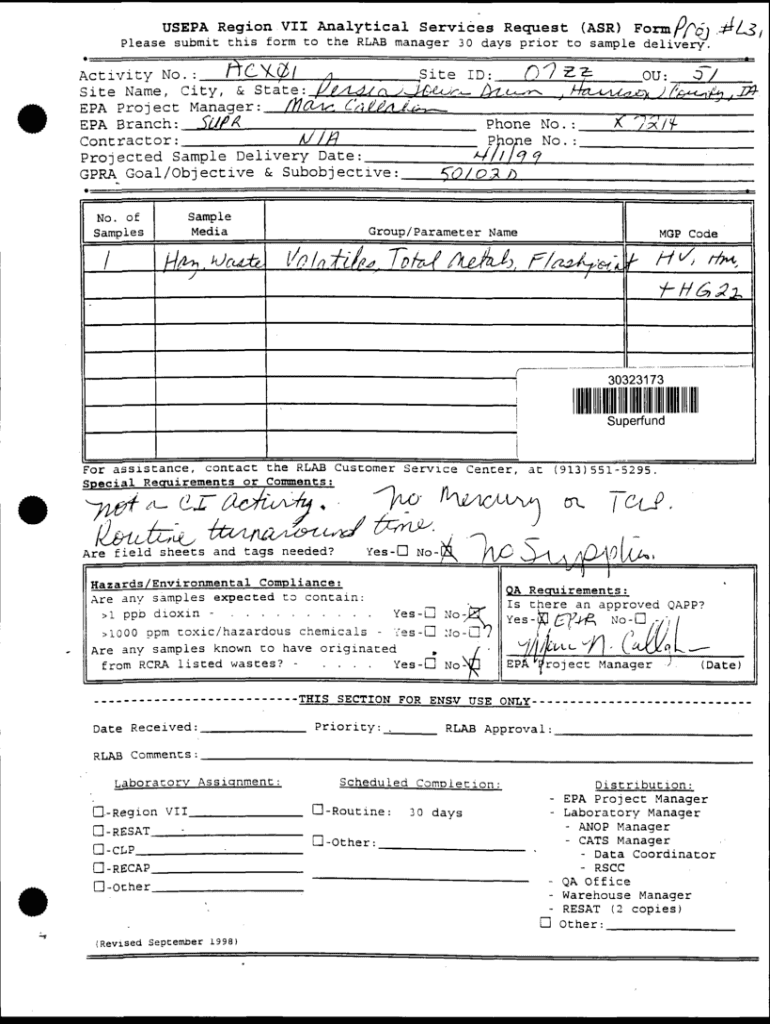 USEPA Region VII Analytical Services Request (ASR) Form Proj #L31
Please submit this form to the RLAB manager 30 days prior to sample delivery.
Activity No.: ACXØ1 Site ID: 07ZZ OU: 51
Site Name, City, & State: Persia Iowa Drum, Harrison County, IA
EPA Project Manager: Marc Callaghan
EPA Branch: SUPR Phone No.: X 7214
Contractor: N/A Phone No.:
Projected Sample Delivery Date: 4/1/99
GPRA Goal/Objective & Subobjective: 50102D
No. of Samples Sample Media Group/Parameter Name MGP Code
1 Haz Waste Volatiles, Total Metals, Flashpoint HV, Hm,
+ HG22
30323173
Superfund
For assistance, contact the RLAB Customer Service Center, at (913)551-5295.
Special Requirements or Comments:
not a CI activity. No Mercury or TCLP.
Routine turnaround time.
Are field sheets and tags needed? Yes-☐ No-☒ No Supplies.
Hazards/Environmental Compliance:
Are any samples expected to contain:
>1 ppb dioxin - . . . . . . . . . . Yes-☐ No-☒
>1000 ppm toxic/hazardous chemicals - Yes-☐ No-☐?
Are any samples known to have originated
from RCRA listed wastes? - . . . . Yes-☐ No-☒
QA Requirements:
Is there an approved QAPP?
Yes-☒ EP&R No-☐
Marc N. Callagh
EPA Project Manager (Date)
THIS SECTION FOR ENSV USE ONLY
Date Received: Priority: RLAB Approval:
RLAB Comments:
Laboratory Assignment: Scheduled Completion: Distribution:
☐-Region VII
☐-RESAT
☐-CLP
☐-RECAP
☐-Other
☐-Routine: 30 days
☐-Other:
- EPA Project Manager
- Laboratory Manager
- ANOP Manager
- CATS Manager
- Data Coordinator
- RSCC
- QA Office
- Warehouse Manager
- RESAT (2 copies)
☐ Other:
(Revised September 1998)